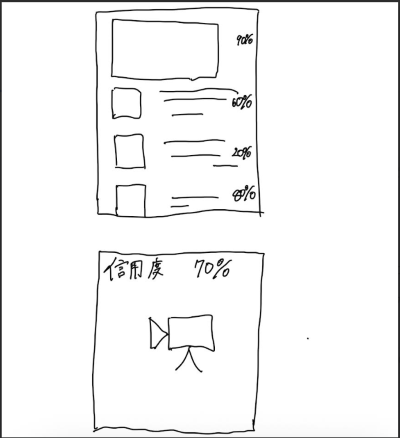 90%
60%
20%
80%
信用度 70%